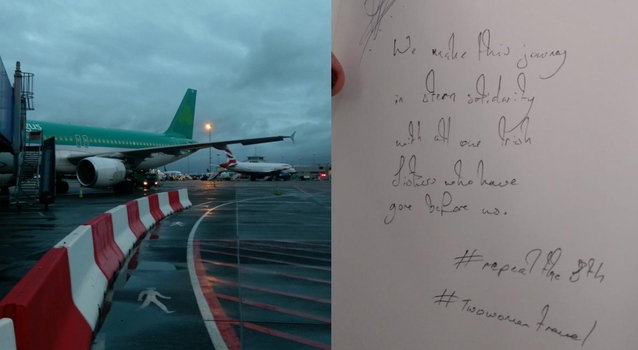 us
We make this journey
in stern solidarity
with all our Irish
Sisters who have
gone before us.
#repeal the 8th
#twowomentravel